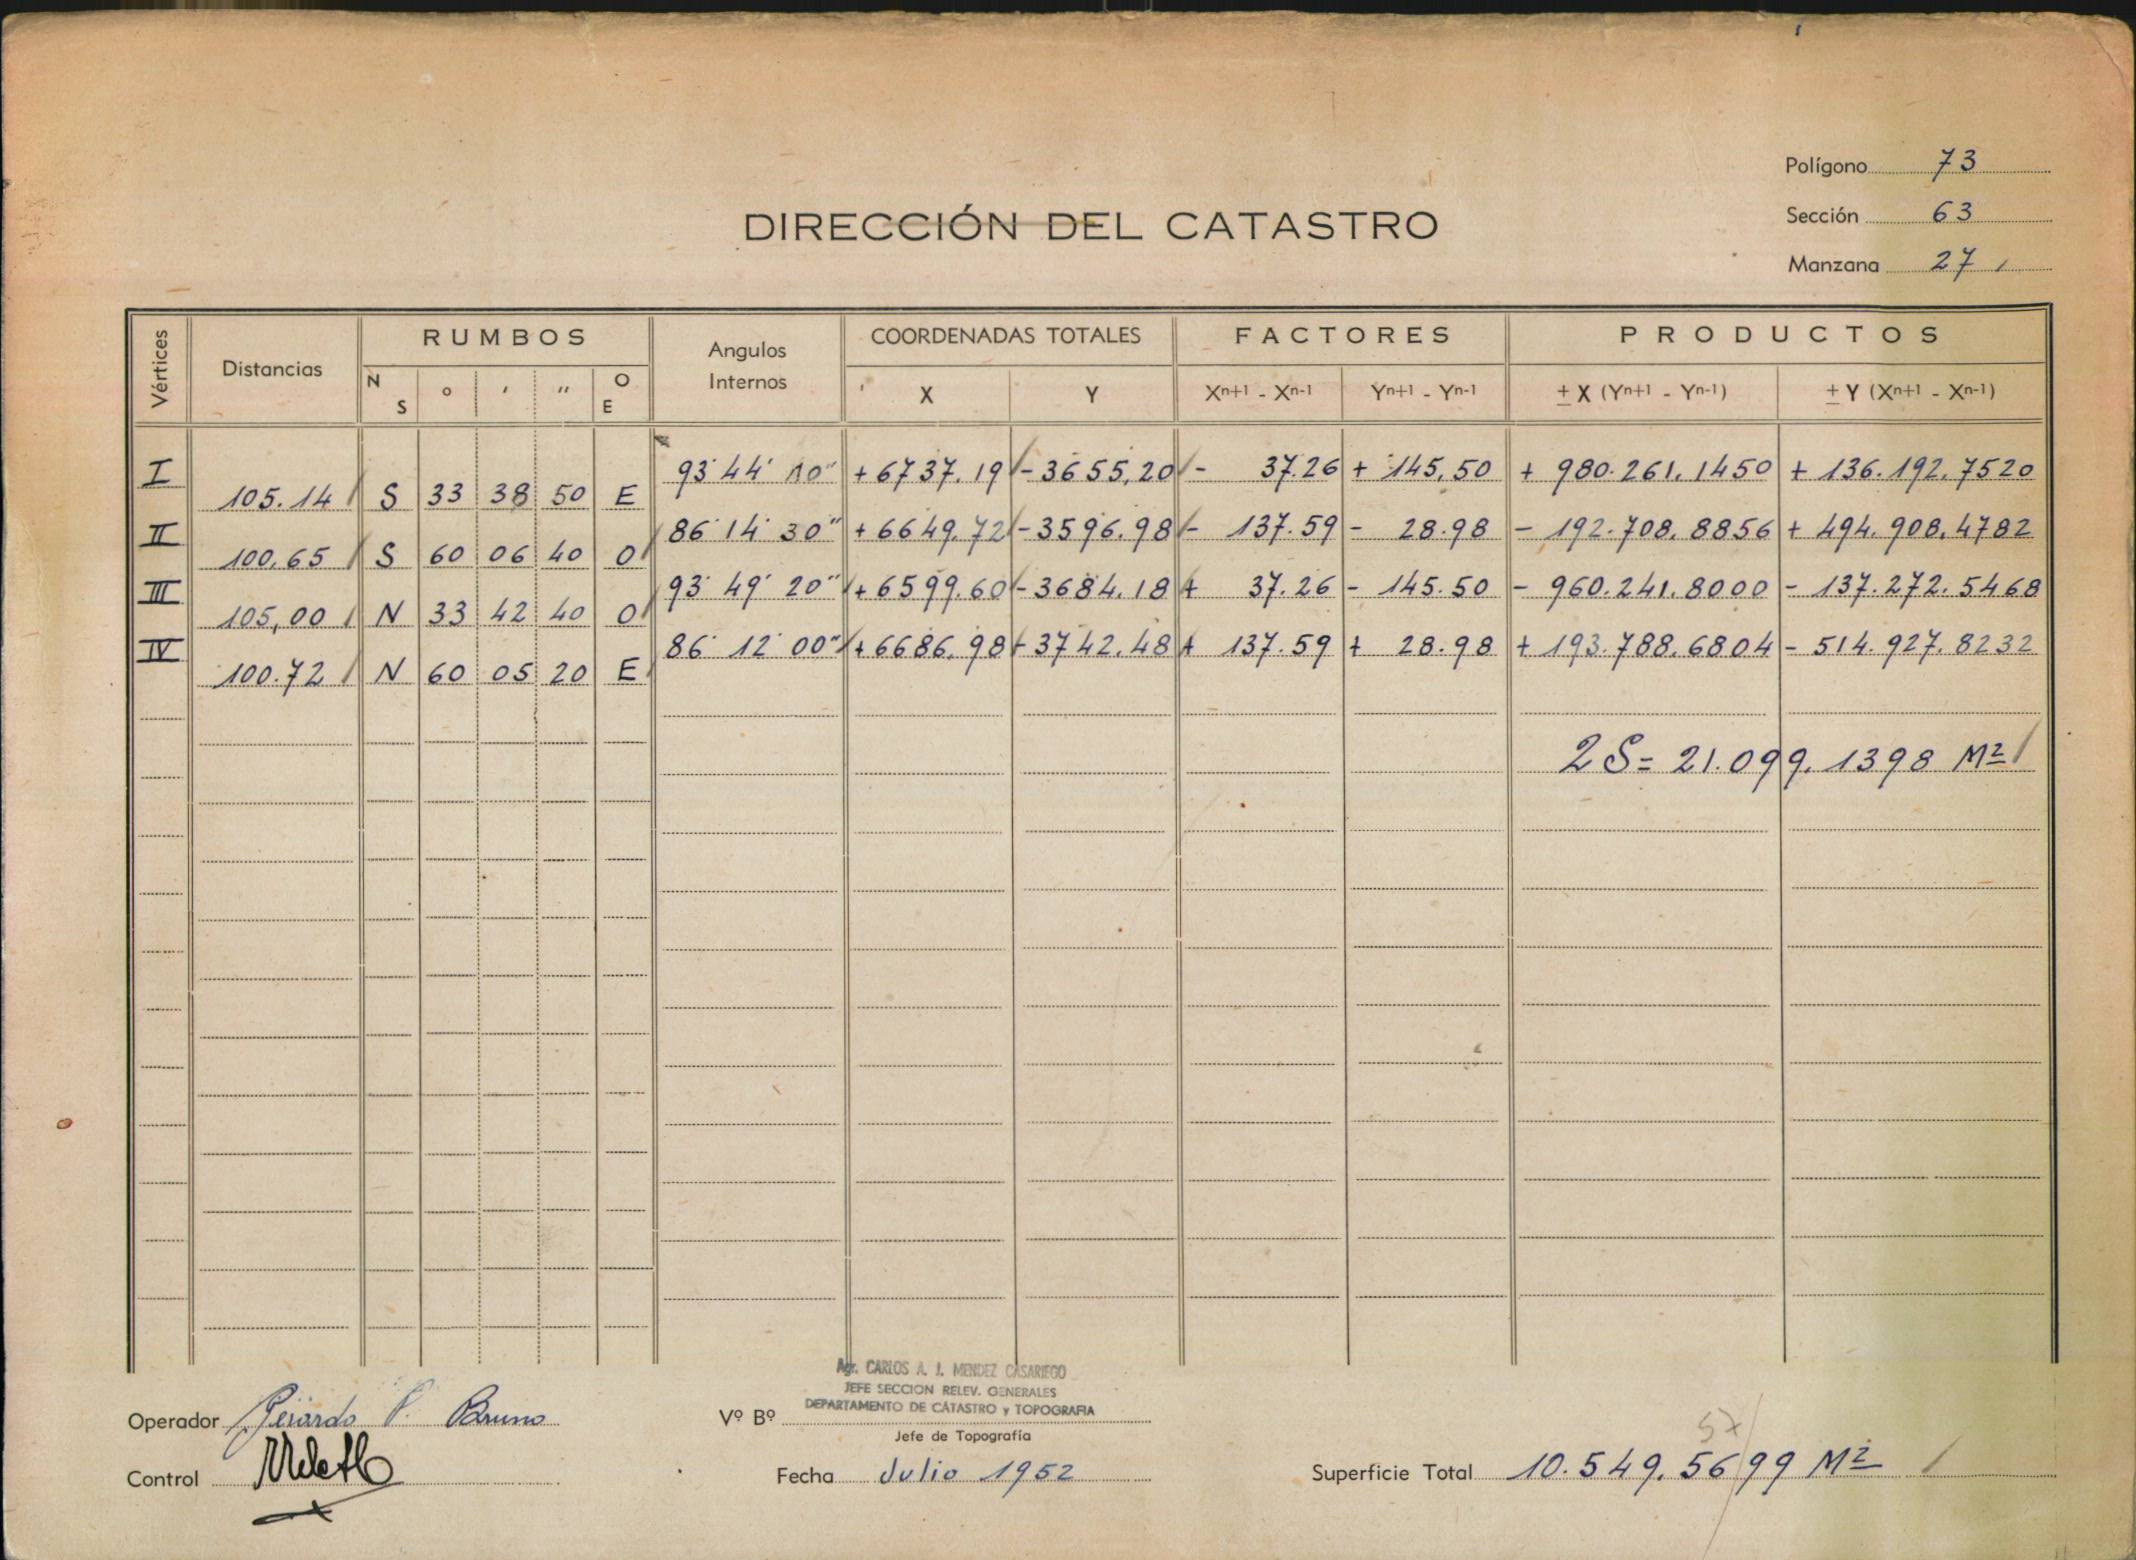 Polígono 73
DIRECCIÓN DEL CATASTRO
Sección 63
Manzana 27
Vértices Distancias RUMBOS Angulos Internos COORDENADAS TOTALES FACTORES PRODUCTOS
N S ° ′ ″ O E X Y Xn+1 - Xn-1 Yn+1 - Yn-1 ± X (Yn+1 - Yn-1) ± Y (Xn+1 - Xn-1)
I 93° 44' 10" + 6737.19 - 3655,20 - 37.26 + 145,50 + 980.261.1450 + 136.192.7520
105.14 S 33 38 50 E
II 86° 14' 30" + 6649.72 - 3596.98 - 137.59 - 28.98 - 192.708.8856 + 494.908.4782
100.65 S 60 06 40 O
III 93° 49' 20" + 6599.60 - 3684.18 + 37.26 - 145.50 - 960.241.8000 - 137.272.5468
105,00 N 33 42 40 O
IV 86° 12' 00" + 6686.98 - 3742.48 + 137.59 + 28.98 + 193.788.6804 - 514.927.8232
100.72 N 60 05 20 E
2S = 21.099.1398 M²
Agr. CARLOS A. J. MENDEZ CASARIEGO
JEFE SECCION RELEV. GENERALES
DEPARTAMENTO DE CATASTRO y TOPOGRAFIA
Operador Gerardo P. Bruno Vº Bº
Jefe de Topografía
57
Control Fecha Julio 1952 Superficie Total 10.549.5699 M²